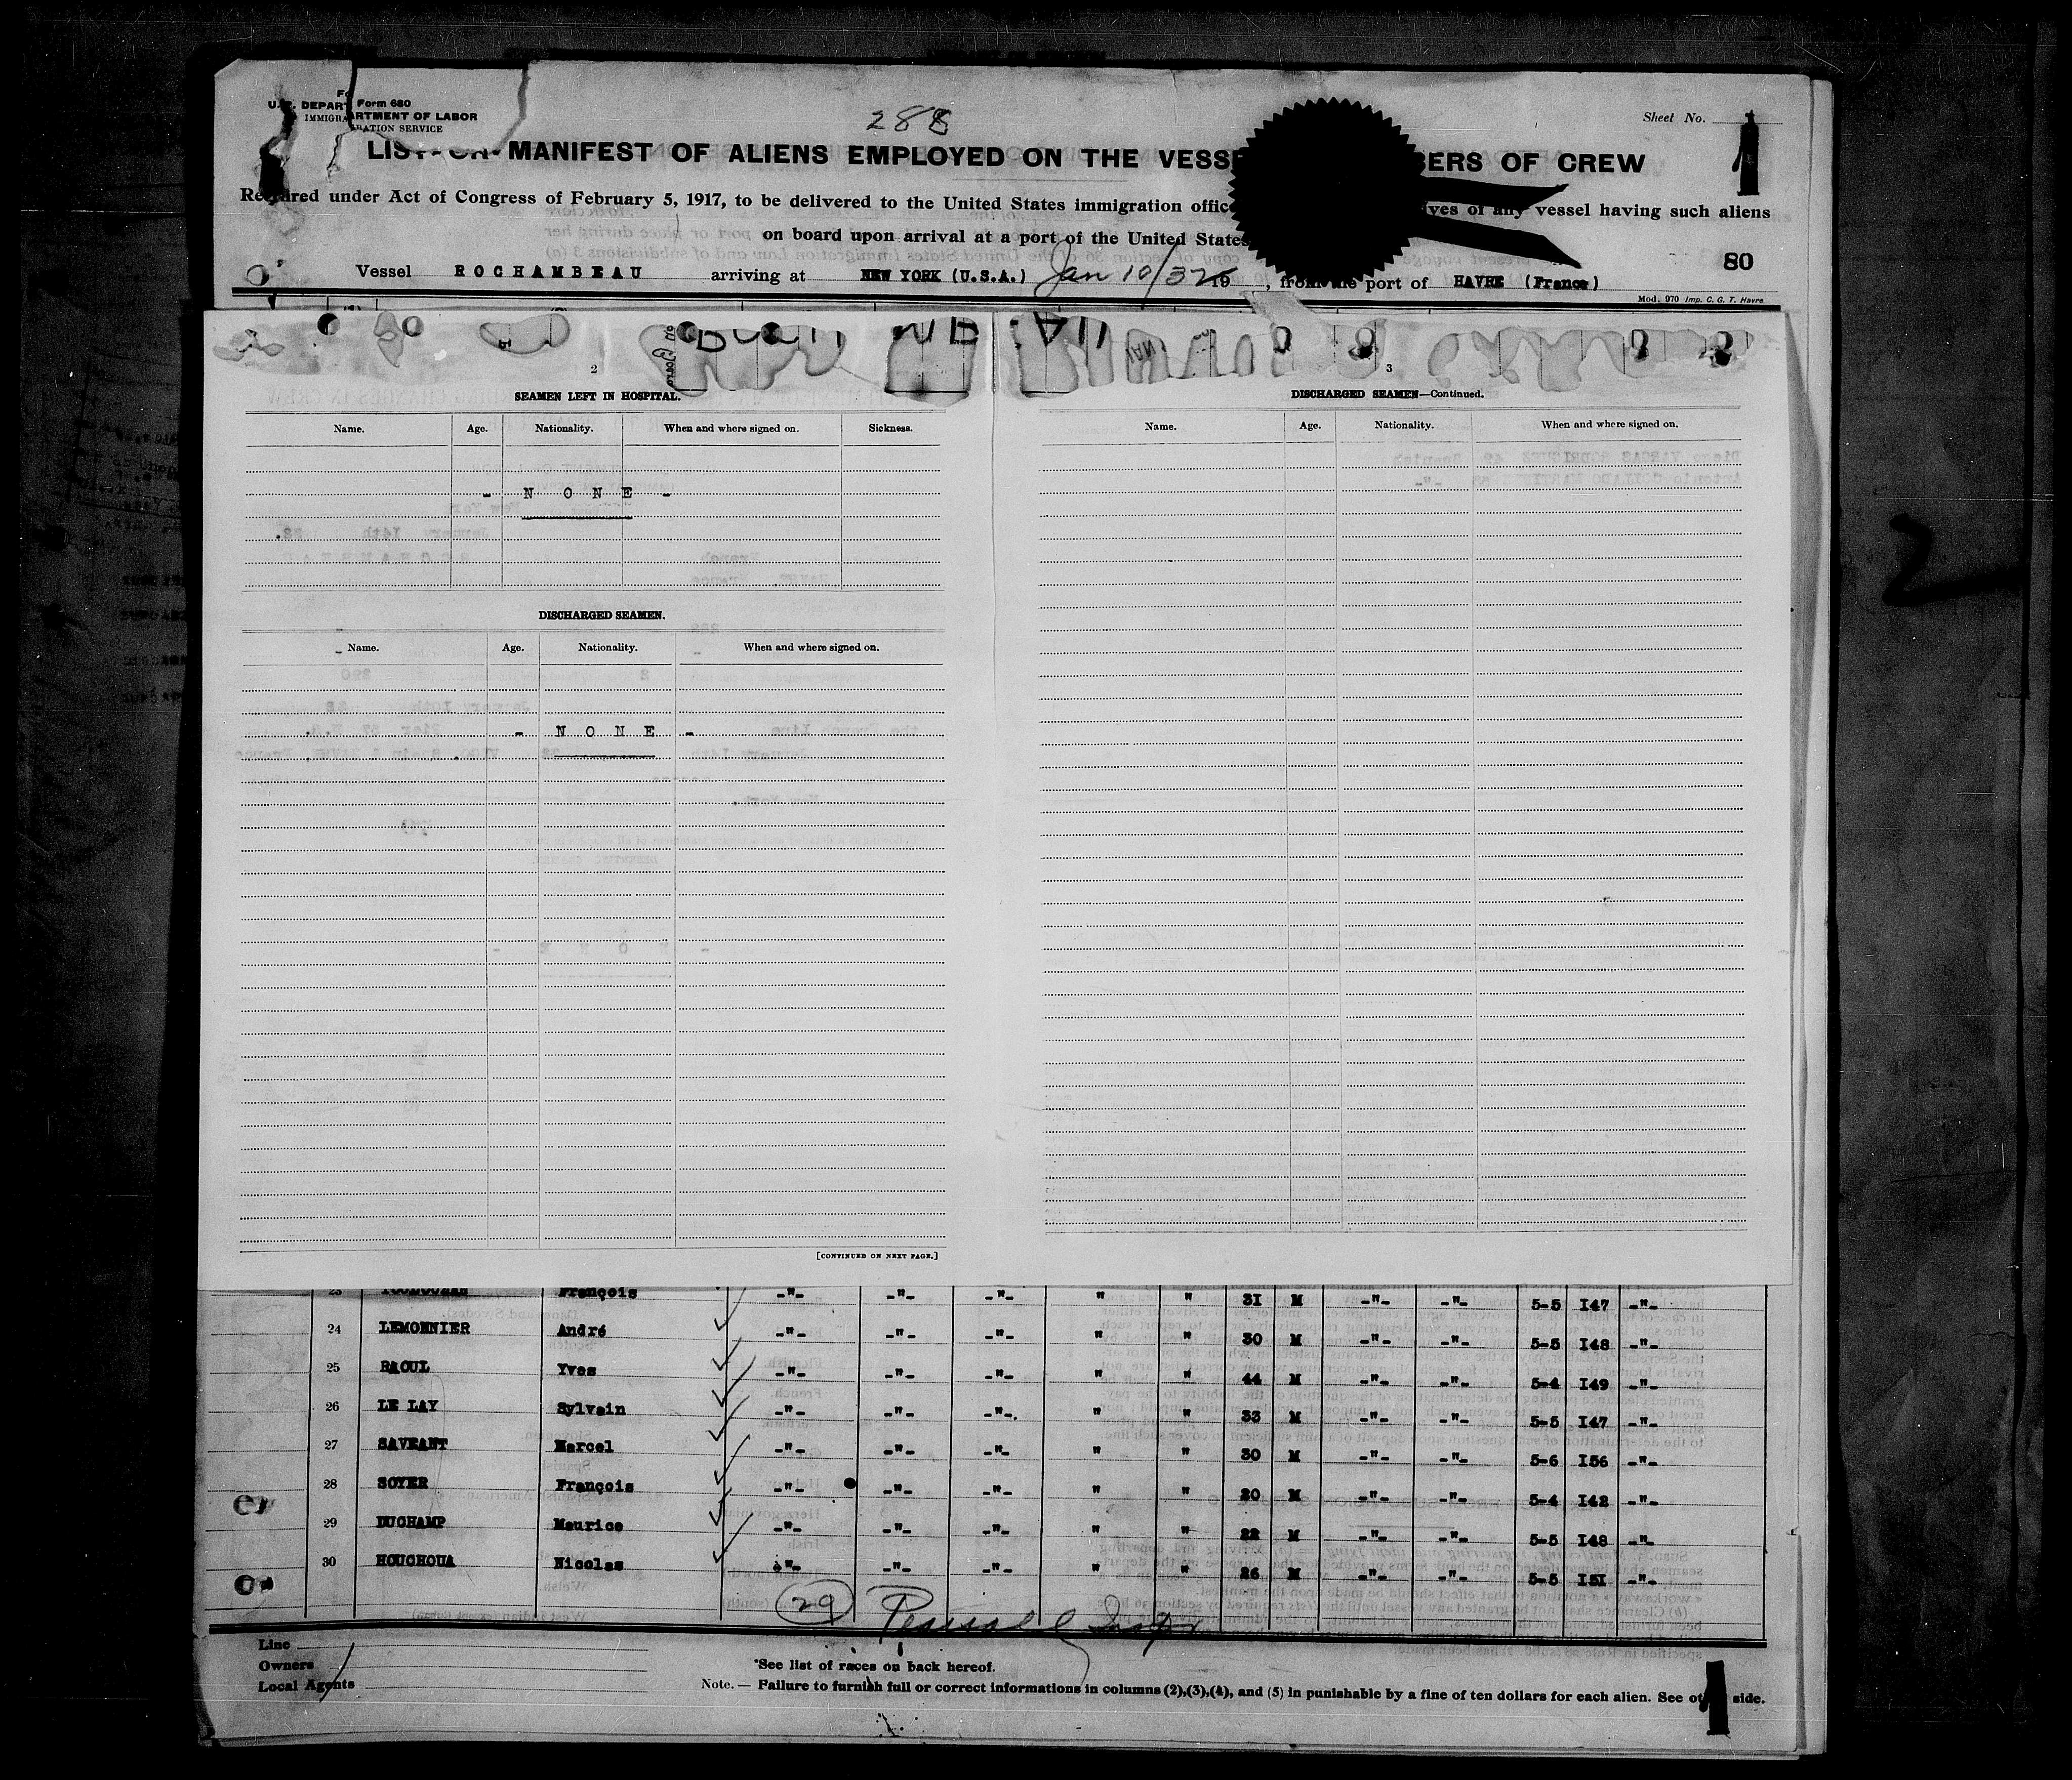 Form 680
U.S. DEPARTMENT OF LABOR
IMMIGRATION SERVICE
288
Sheet No.
LIST OR MANIFEST OF ALIENS EMPLOYED ON THE VESSEL BERS OF CREW
Required under Act of Congress of February 5, 1917, to be delivered to the United States immigration ves of any vessel having such aliens
on board upon arrival at a port of the United States
80
Vessel ROCHAMBEAU arriving at NEW YORK (U.S.A.) Jan 10/32 19 , from the port of HAVRE (France)
Mod. 970 Imp. C. G. T. Havre
2
SEAMEN LEFT IN HOSPITAL.
Name. Age. Nationality. When and where signed on. Sickness.
- N O N E -
DISCHARGED SEAMEN.
Name. Age. Nationality. When and where signed on.
- N O N E -
[CONTINUED ON NEXT PAGE.]
3
DISCHARGED SEAMEN—Continued.
Name. Age. Nationality. When and where signed on.
23 François -"- -"- -"- " " 31 M -"- -"- 5-5 I47 -"-
24 LEMONNIER André -"- -"- -"- " " 30 M -"- -"- 5-5 I48 -"-
25 RAOUL Yves -"- -"- -"- " " 44 M -"- -"- 5-4 I49 -"-
26 LE LAY Sylvain -"- -"- -"- " " 33 M -"- -"- 5-5 I47 -"-
27 SAVEANT Marcel -"- -"- -"- " " 30 M -"- -"- 5-6 I56 -"-
28 SOYER François -"- -"- -"- " " 20 M -"- -"- 5-4 I42 -"-
29 DUCHAMP Maurice -"- -"- -"- " " 22 M -"- -"- 5-5 I48 -"-
30 HOUCHOUA Nicolas -"- -"- -"- " " 26 M -"- -"- 5-5 I5I -"-
29
Line
Owners
Local Agents
*See list of races on back hereof.
Note. — Failure to furnish full or correct informations in columns (2),(3),(4), and (5) in punishable by a fine of ten dollars for each alien. See side.